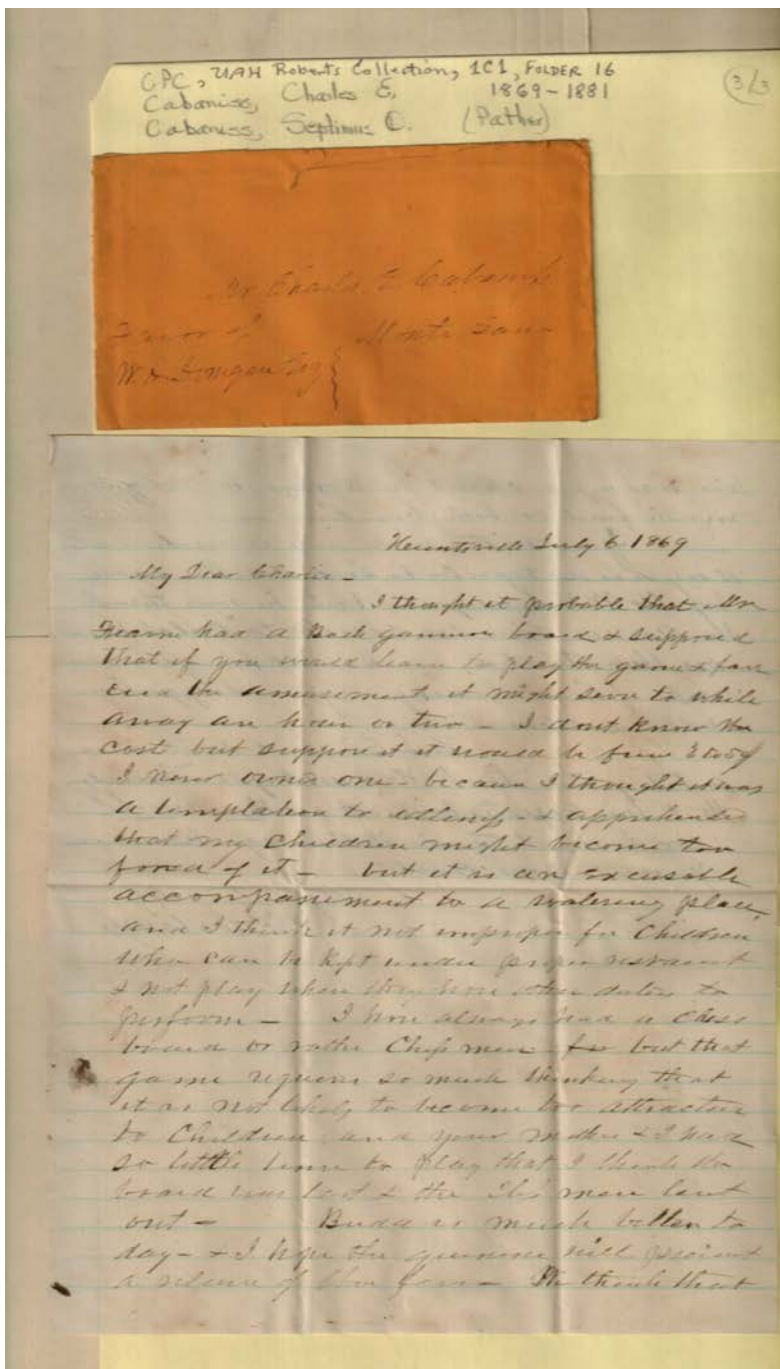 CPC, UAH Roberts Collection, 1C1, FOLDER 16
Cabaniss, Charles E. 1869-1881
Cabaniss, Septimus D. (Father)
3/3
Mr Charles E Cabaniss
Favor of Monte Sano
W.
Huntsville July 6 1869
My Dear Charlie -
I thought it probable that Mr
Fearn had a Back gammon board & supposed
that if you would learn to play the game &
the amusement, it might serve to while
away an hour or two - I dont know the
cost but suppose it would be from
I never owned one - because I thought it was
a temptation to idleness - & apprehended
that my children might become too
fond of it - but it is an excusable
accompaniment to a watering place,
and I think it not improper for Children
who can be kept under proper restraint
& not play when they have other duties to
perform - I have always had a Chess
board or rather Chess men but that
game requires so much thinking that
it is not likely to become too attractive
to Children, and your mother & I had
so little time to play that I think the
board was lost & the men lent
out - is much better to
day - & I hope the quinine will prevent
a return of the fever - We think that